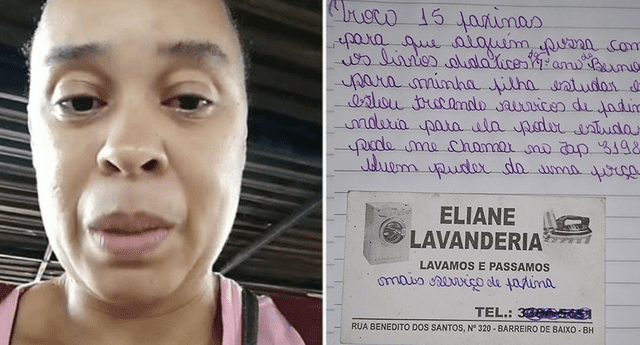 Troco 15 faxinas
para que alguém possa com
os livros didáticos do 7º ano do
para minha filha estudar
estou trocando serviços de faxin
nderia para ela poder estudar
pode me chamar no zap 3198
Quem puder da uma força
ELIANE
LAVANDERIA
LAVAMOS E PASSAMOS
mais serviço de faxina
TEL.:
RUA BENEDITO DOS SANTOS, Nº 320 - BARREIRO DE BAIXO - BH